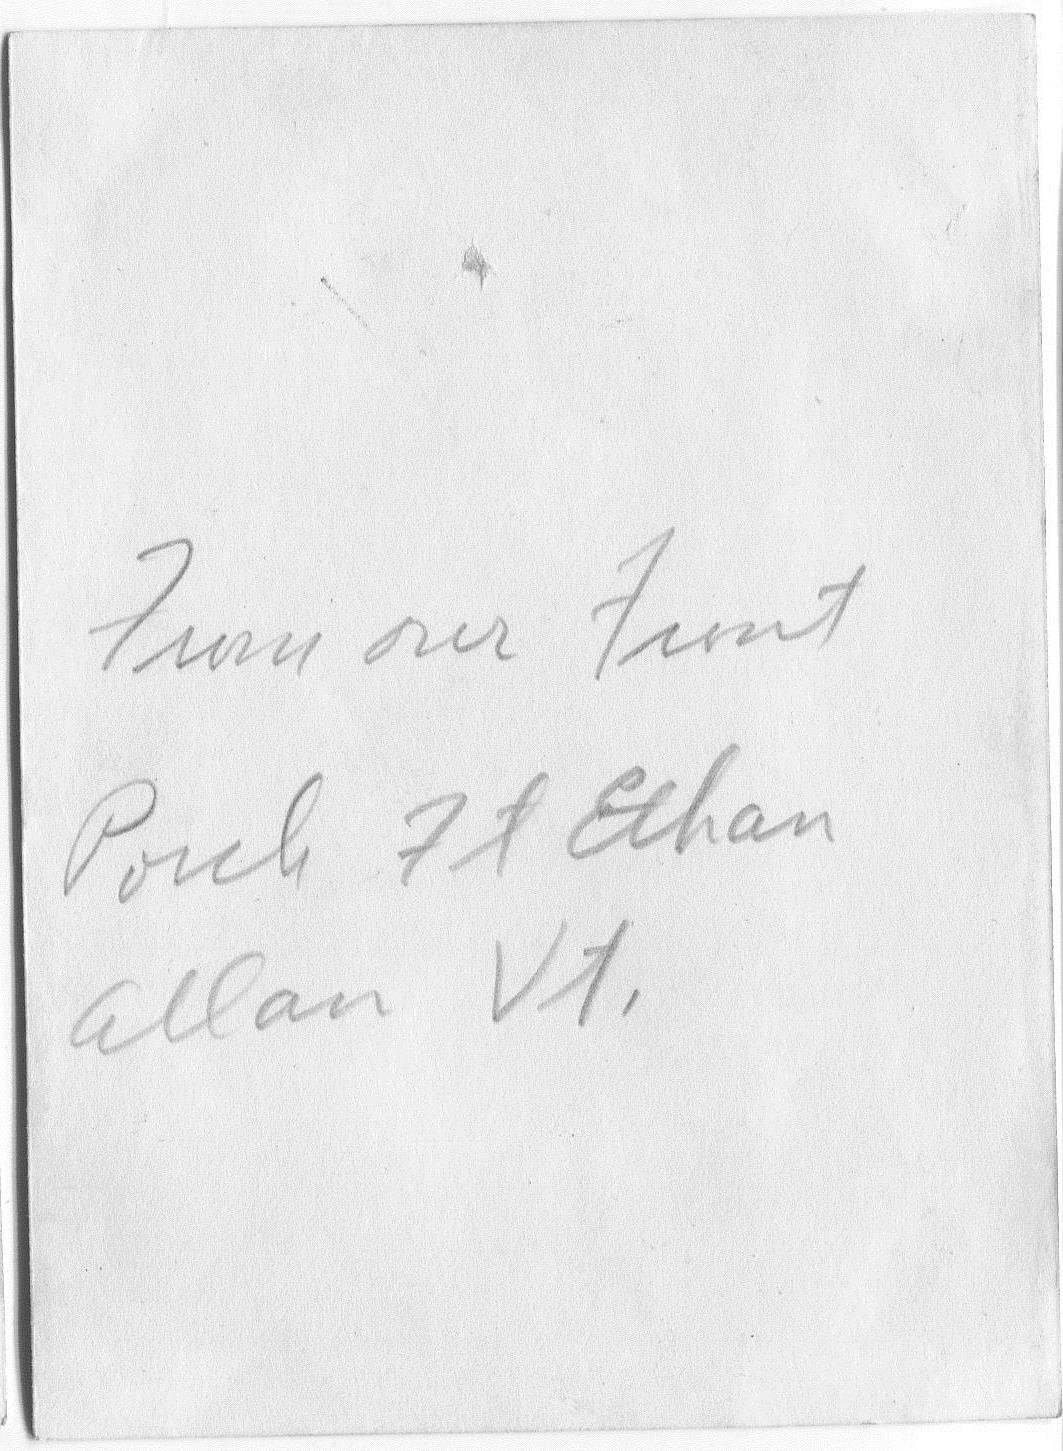 From our Front
Porch Ft Ethan
Allan Vt.